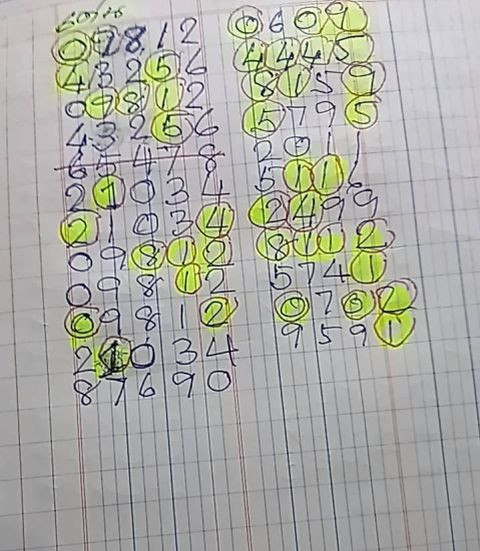 0 9 8 1 2
4 3 2 5 6
0 9 8 1 2
4 3 2 5 6
6 5 4 7 8
2 1 0 3 4
2 1 0 3 4
0 9 8 1 2
0 9 8 1 2
0 9 8 1 2
2 1 0 3 4
8 7 6 9 0
0 6 0 9
4 4 4 5
8 1 5 9
5 7 9 5
2 0 1 1
5 1 1 1
2 4 9 9
8 1 1 2
5 7 4 1
0 7 0 2
9 5 9 1